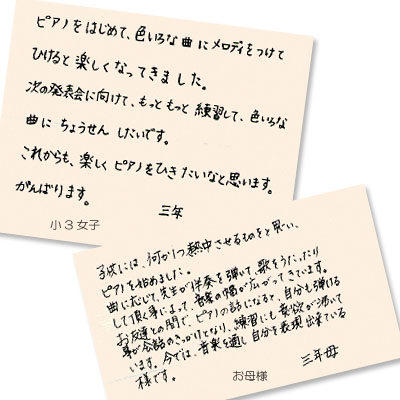 ピアノをはじめて、色いろな曲にメロディをつけて
ひけると楽しくなってきました。
次の発表会に向けて、もっともっと練習して、色いろな
曲にちょうせんしたいです。
これからも、楽しくピアノをひきたいなと思います。
がんばります。
三年
小3女子
子供には、何か1つ熱中させるものをと思い、
ピアノを始めました。
曲に応じて、先生が伴奏を弾いて、歌をうたったり
して頂く事によって、音楽の幅が広がってきています。
お友達との間で、ピアノの話になると、自分も弾ける
事が会話のきっかけとなり、練習にも意欲が沸いて
います。今では、音楽を通し自分を表現出来ている
様です。
三年母
お母様